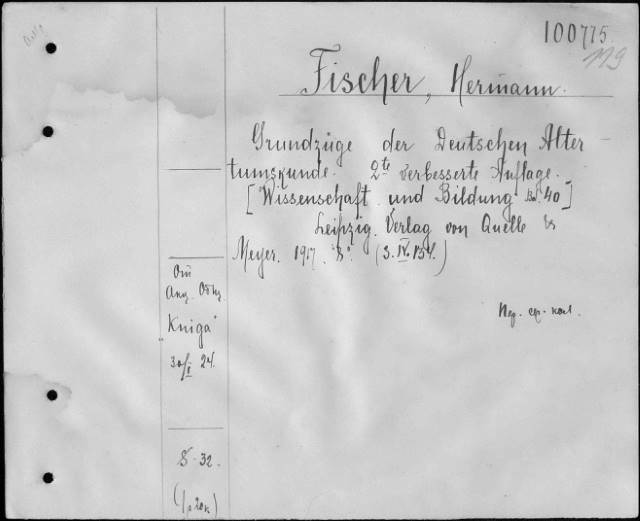 100775
119
Fischer, Hermann.
Grundzüge der Deutschen Alter-
tumskunde. 2te verbesserte Auflage.
["Wissenschaft und Bildung" Bd. 40]
Leipzig. Verlag von Quelle &
Meyer. 1917. 8°. (3. IV. 134.)
От
Акц. Общ.
"Kniga"
30/I 24.
Пер. ср. кол.
8-32.
(1 р 20к)